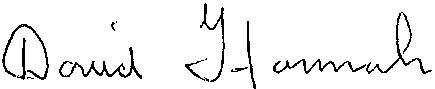 David Hannah